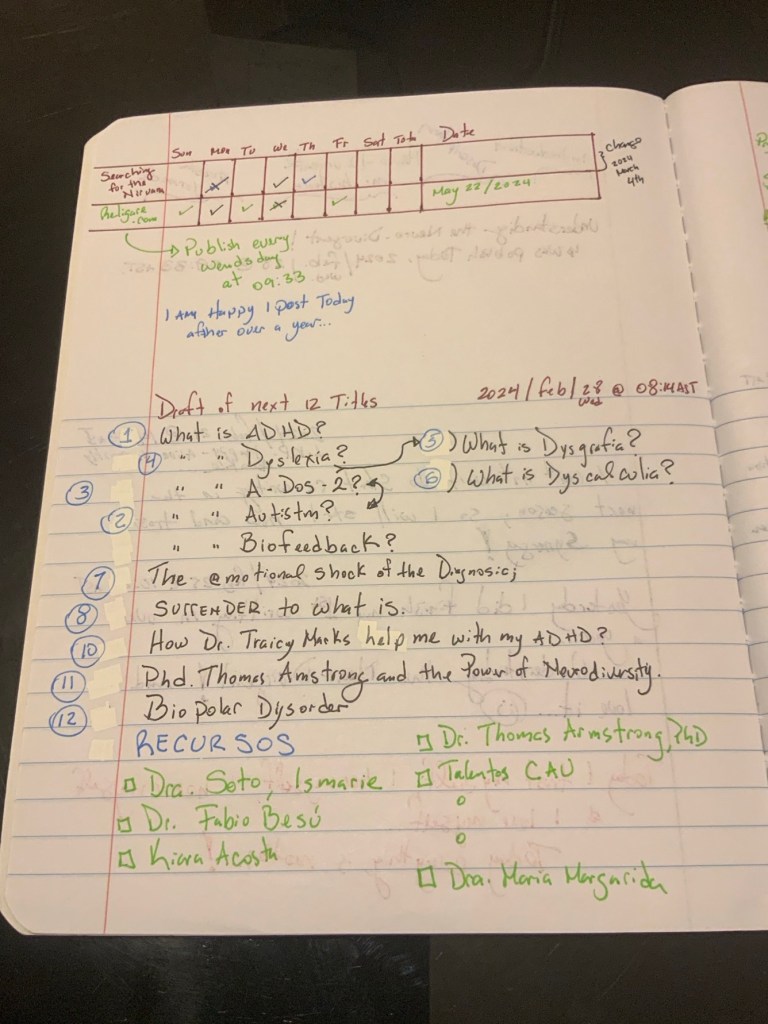 Sun Mon Tu We Th Fr Sat Tota Date
Searching
for the
Nirvana
Change
2024
March
4th
Religare.com May 22/2024
Publish every!
wendsday
at 09:33
I am Happy I post Today
afther over a year...
Draft of next 12 Titles 2024/feb/28 @ 08:14 AST
Wed
1 What is ADHD?
4 " " Dyslexia?
3 " " A-Dos-2?
2 " " Autistm?
" " Biofeedback?
5) What is Dysgrafia?
6) What is Dyscalculia?
7 The emotional shock of the Diagnosic;
8 SURRENDER to what is.
10 How Dr. Traicy Marks help me with my ADHD?
11 Phd. Thomas Amstrong and the Power of Neurodiversity.
12 Bio polar Dysorder
RECURSOS
Dra. Soto, Ismarie
Dr. Fabio Besú
Kiara Acosta
Dr. Thomas Armstrong, PhD
Talentos CAU
Dra. Maria Margarida